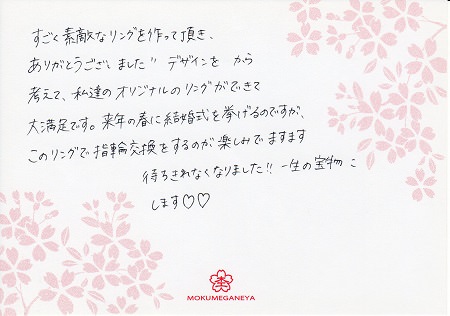 すごく素敵なリングを作って頂き、
ありがとうございました!! デザインを から
考えて、私達のオリジナルのリングができて
大満足です。来年の春に結婚式を挙げるのですが、
このリングで指輪交換をするのが楽しみでますます
待ちきれなくなりました!! 一生の宝物に
します♡♡
MOKUMEGANEYA